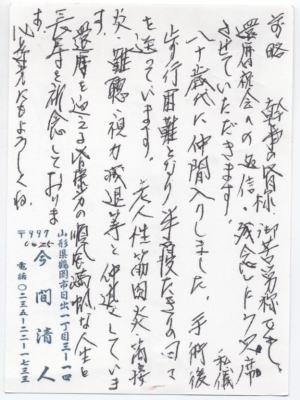 前略
幹事の皆様、御苦労様です。
還暦祝会への返信、残念ながら欠席
させていただきます。
私儀
八十歳代に仲間入りしました。手術後
歩行困難となり半寝たきりの日々
を送っています。
老人性筋肉炎、
炎、難聴、視力減退等と仲良しています
還暦を迎える皆様方の順風満帆な人生と
長寿を祈念しております。
よろしくね。
〒997
0825
山形県鶴岡市日出一丁目三ー一四
今間清人
電話〇二三五ー二二ー一七三三